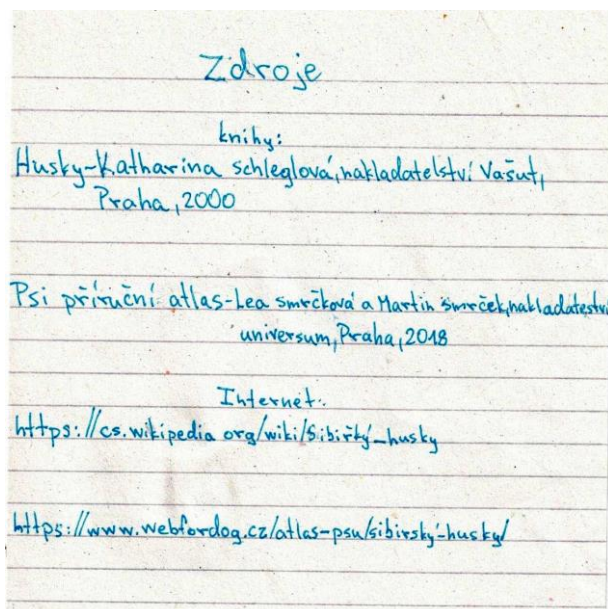 Zdroje
knihy:
Husky-Katharina Schleglová, nakladatelství Vašut,
Praha, 2000
Psi příruční atlas-Lea smrčková a Martin smrček, nakladateství
universum, Praha, 2018
Internet:
https://cs.wikipedia org/wiki/Sibiřký-husky
https://www.webfordog.cz/atlas-psu/sibirský-husky/